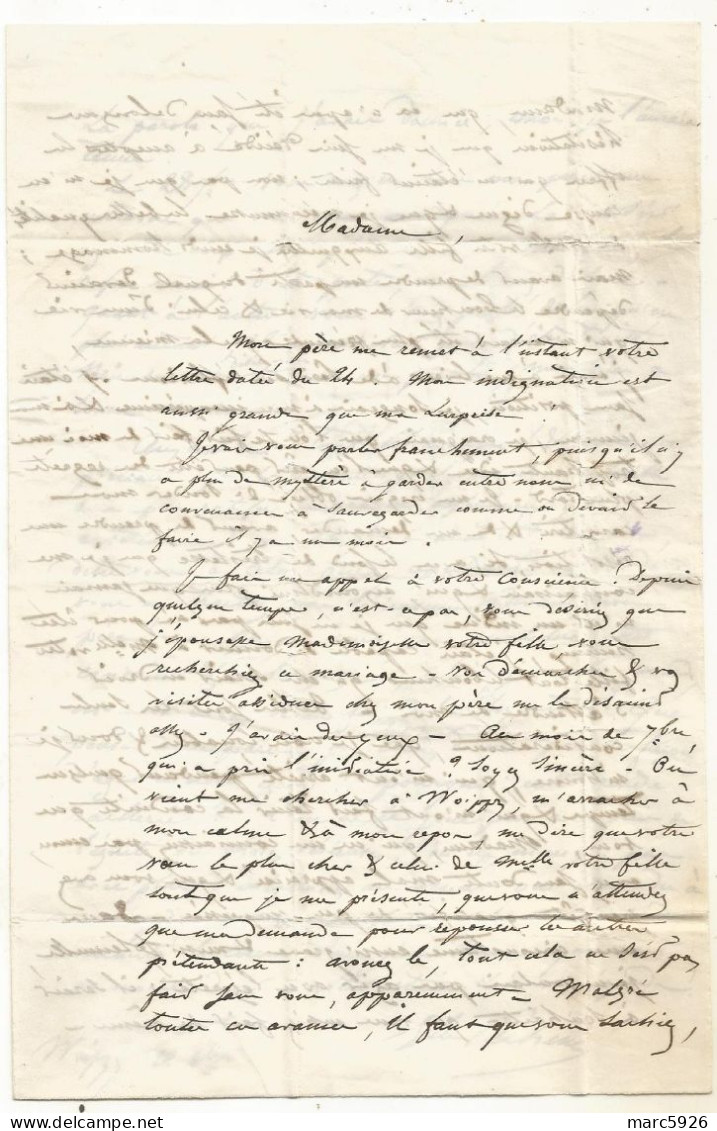 Madame,
Mon père me remet à l'instant votre
lettre datée du 24. Mon indignation est
aussi grande que ma surprise !
Je vais vous parler franchement, puisqu'il n'y
a plus de mystère à garder entre nous ni de
convenance à sauvegarder comme on devait le
faire il y a un mois.
Je fais un appel à votre conscience. Depuis
quelque temps, n'est-ce pas, vous désiriez que
j'épousasse Mademoiselle votre fille, vous
recherchiez ce mariage - vos démarches & vos
visites assidues chez mon père me le disaient
assez - J'avais des yeux - Au mois de 7bre
qui a pris l'initiative ? Soyez sincère - On
vient me chercher à Woippy, m'arracher à
mon calme & à mon repos, me dire que votre
vœu le plus cher & celui de Melle votre fille
sont que je me présente, que vous n'attendez
que ma demande pour repousser les autres
prétendants : avouez le, tout cela ne s'est pas
fait sans vous, apparemment - Malgré
toutes ces avances, il faut que vous sachiez,
marc5926